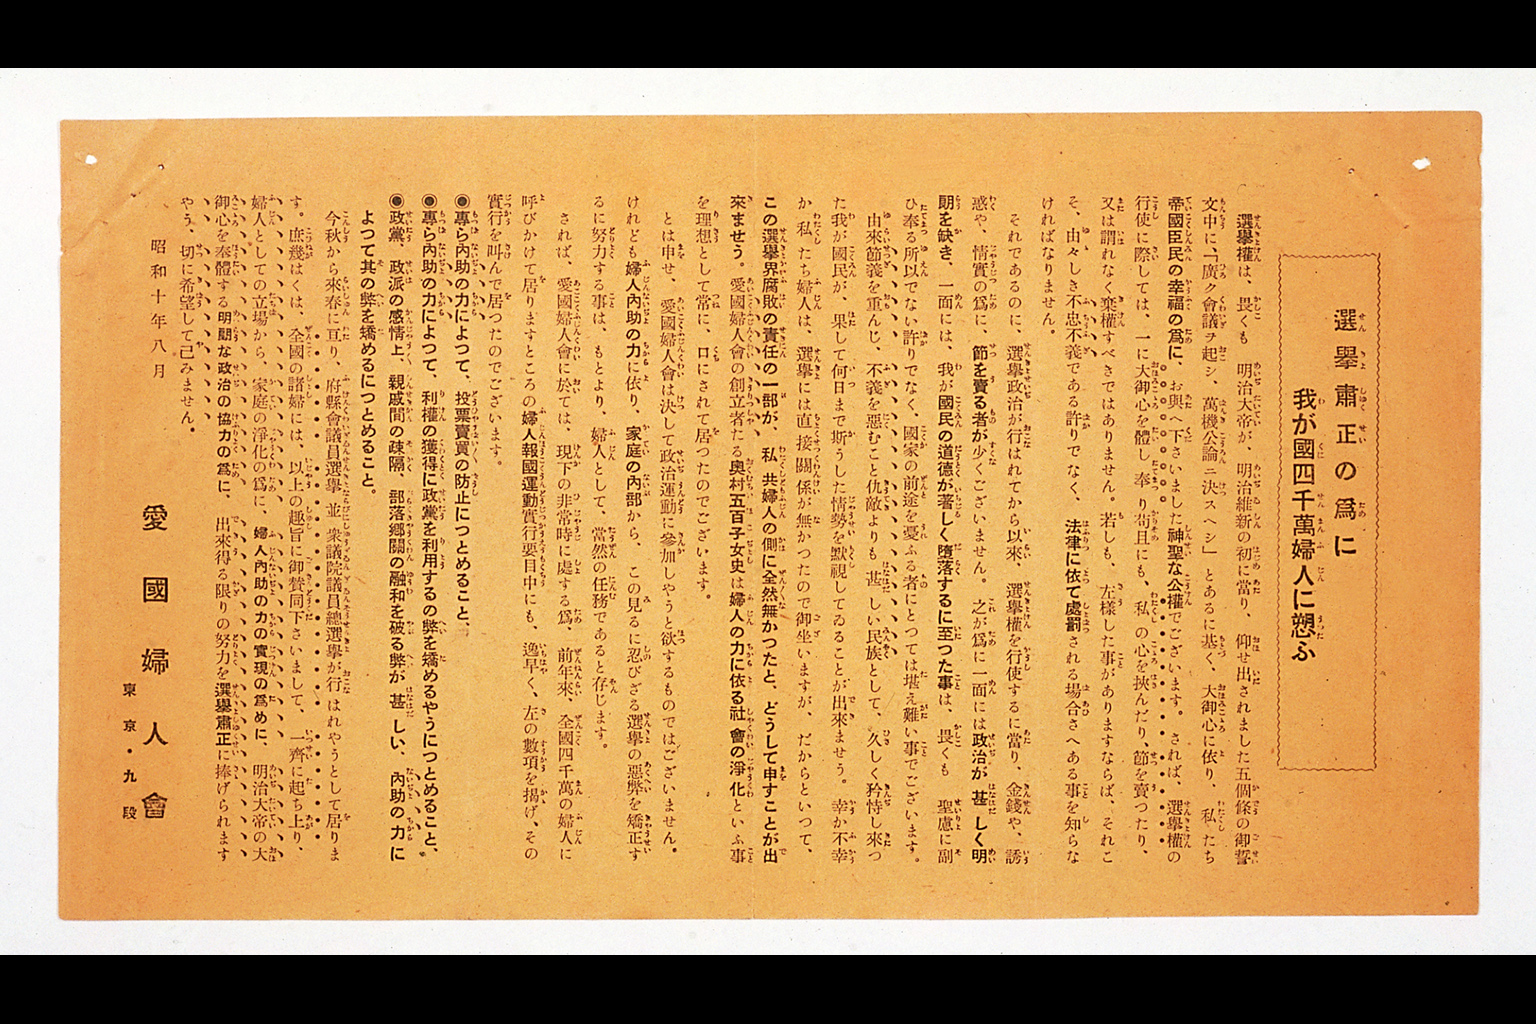 選擧肅正の爲に
我が國四千萬婦人に愬ふ
選擧權は、畏くも　明治大帝が、明治維新の初に當り、仰せ出されました五個條の御誓
文中に、「廣ク會議ヲ起シ、萬機公論ニ決スヘシ」とあるに基く、大御心に依り、私たち
帝國臣民の幸福の爲に、お與へ下さいました神聖な公權でございます。されば、選擧權の
行使に際しては、一に大御心を體し奉り苟且にも、私の心を挾んだり、節を賣つたり、
又は謂れなく棄權すべきではありません。若しも、左樣した事がありますならば、それこ
そ、由々しき不忠不義である許りでなく、法律に依て處罰される場合さへある事を知らな
ければなりません。
それであるのに、選擧政治が行はれてから以來、選擧權を行使するに當り、金錢や、誘
惑や、情實の爲に、節を賣る者が少くございません。之が爲に一面には政治が甚しく明
朗を缺き、一面には、我が國民の道德が著しく墮落するに至つた事は、畏くも　聖慮に副
ひ奉る所以でない許りでなく、國家の前途を憂ふる者にとつては堪え難い事でございます。
由來節義を重んじ、不義を惡むこと仇敵よりも甚しい民族として、久しく矜恃し來つ
た我が國民が、果して何日まで斯うした情勢を默視してゐることが出來ませう。幸か不幸
か私たち婦人は、選擧には直接關係が無かつたので御坐いますが、だからといつて、
この選擧界腐敗の責任の一部が、私共婦人の側に全然無かつたと、どうして申すことが出
來ませう。愛國婦人會の創立者たる奧村五百子女史は婦人の力に依る社會の淨化といふ事
を理想として常に、口にされて居つたのでございます。
とは申せ、愛國婦人會は決して政治運動に參加しやうと欲するものではございません。
けれども婦人內助の力に依り、家庭の內部から、この見るに忍びざる選擧の惡弊を矯正す
るに努力する事は、もとより、婦人として、當然の任務であると存じます。
されば、愛國婦人會に於ては、現下の非常時に處する爲、前年來、全國四千萬の婦人に
呼びかけて居りますところの婦人報國運動實行要目中にも、逸早く、左の數項を揭げ、その
實行を叫んで居つたのでございます。
◉專ら內助の力によつて、投票賣買の防止につとめること、
◉專ら內助の力によつて、利權の獲得に政黨を利用するの弊を矯めるやうにつとめること、
◉政黨、政派の感情上、親戚間の疎隔、部落鄕關の融和を破る弊が甚しい、內助の力に
よつて其の弊を矯めるにつとめること。
今秋から來春に亘り、府縣會議員選擧並衆議院議員總選擧が行はれやうとして居りま
す。庶幾はくは、全國の諸婦には、以上の趣旨に御贊同下さいまして、一齊に起ち上り、
婦人としての立場から、家庭の淨化の爲に、婦人內助の力の實現の爲めに、明治大帝の大
御心を奉體する明朗な政治の協力の爲に、出來得る限りの努力を選擧肅正に捧げられます
やう、切に希望して已みません。
昭和十年八月
愛國婦人會
東京・九段